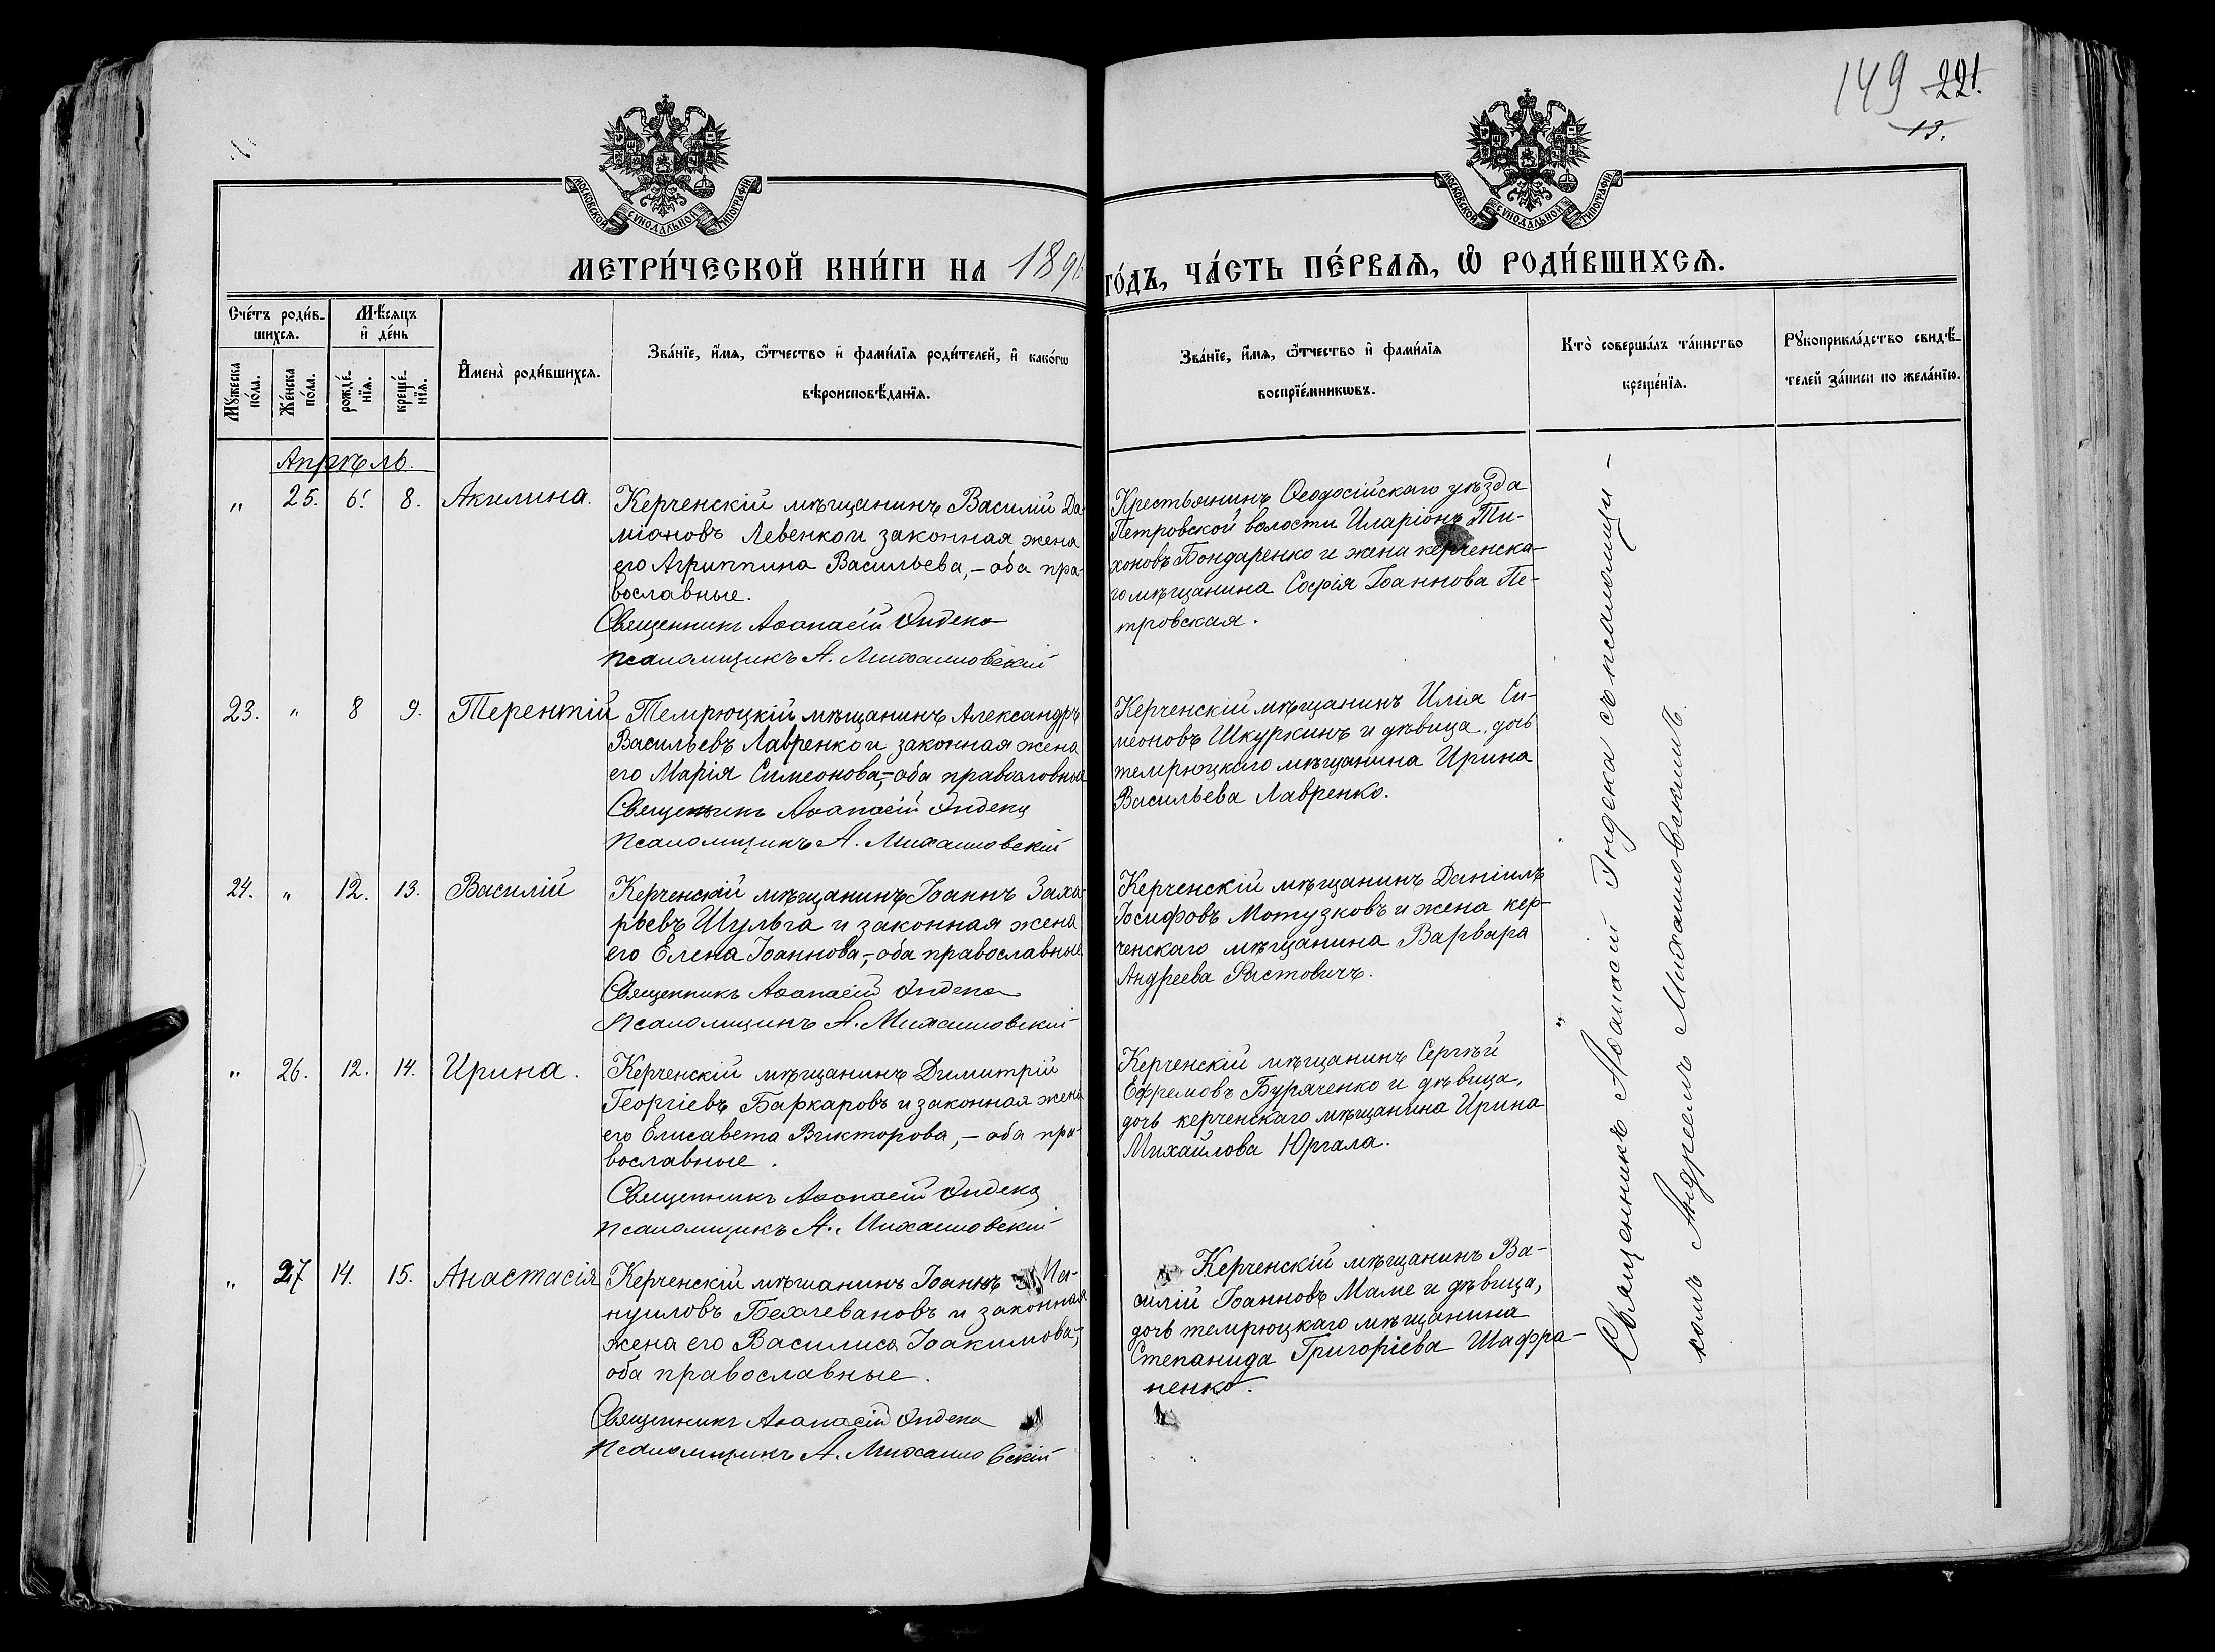 149 221.
13.
МОСКОВСКОЙ СѴНОДАЛЬНОЙ ТИПОГРАФІИ
МОСКОВСКОЙ СѴНОДАЛЬНОЙ ТИПОГРАФІИ
МЕТРИ́ЧЕСКОЙ КНИ́ГИ НА 189
ГО́ДЪ, ЧА́СТЬ ПЕ́РВАЯ, Ѡ РОДИ́ВШИХСЯ.
Сче́тъ роди́в-
шихся.
Мѣсяцъ
и де́нь
Мꙋжеска
по́ла.
Же́нска
по́ла.
рожде́-
нїя.
креще́-
нїя.
Имена̀ роди́вшихся.
Зва́нїе, и́мя, ѻ́тчество и фами́лїя роди́телей, и како́гѡ
вѣроисповѣ́данїя.
Зва́нїе, и́мя, ѻ́тчество и фами́лїя
воспрїе́мникѡвъ.
Кто̀ соверша́лъ та́инство
креще́нїя.
Рꙋкоприкла́дство свидѣ́-
телей за́писи по жела́нїю.
Апрѣль.
„ 25. 6. 8. Акилина.
Керченскій мѣщанинъ Василій Да-
міановъ Левенко и законная жена
его Агриппина Васильева,- оба пра-
вославные.
Священникъ Аѳанасій Индека
Псаломщикъ А. Михаиловскій
Крестьянинъ Ѳеодосійскаго уѣзда
Петровской волости Иларіонъ Ти-
хоновъ Бондаренко и жена керченска-
го мѣщанина Софія Іоаннова Пе-
тровская.
23. „ 8 9. Терентій
Темрюцкій мѣщанинъ Александръ
Васильевъ Лавренко и законная жена
его Марія Симеонова,- оба православные
Священникъ Аѳанасій Индека
Псаломщикъ А. Михаиловскій
Керченскій мѣщанинъ Илія Си-
меоновъ Шкуркинъ и дѣвица, дочь
темрюцкаго мѣщанина Ирина
Васильева Лавренко.
24. „ 12. 13. Василій
Керченскій мѣщанинъ Іоаннъ Заха-
рьевъ Шульга и законная жена
его Елена Іоаннова,- оба православные
Священникъ Аѳанасій Индека
Псаломщикъ А. Михаиловскій
Керченскій мѣщанинъ Даніилъ
Іосифовъ Мотузковъ и жена кер-
ченскаго мѣщанина Варвара
Андреева Фастовичъ.
„ 26. 12. 14. Ирина.
Керченскій мѣщанинъ Димитрій
Георгіевъ Баркаровъ и законная жена
его Елисавета Викторова,- оба пра-
вославные.
Священникъ Аѳанасій Индека
Псаломщикъ А. Михаиловскій
Керченскій мѣщанинъ Сергѣй
Ефремовъ Буряченко и дѣвица,
дочь керченскаго мѣщанина Ирина
Михайлова Юргала.
„ 27 14. 15. Анастасія
Керченскій мѣщанинъ Іоаннъ Ма-
нуиловъ Бехчевановъ и законная
жена его Василиса Іоакимова,-
оба православные.
Священникъ Аѳанасій Индека
Псаломщикъ А. Михаиловскій
Керченскій мѣщанинъ Ва-
силій Іоанновъ Маме и дѣвица,
дочь темрюцкаго мѣщанина
Степанида Григоріева Шафра-
ненко.
Священникъ Аѳанасій Индека съ псаломщи-
комъ Андреемъ Михаиловскимъ.